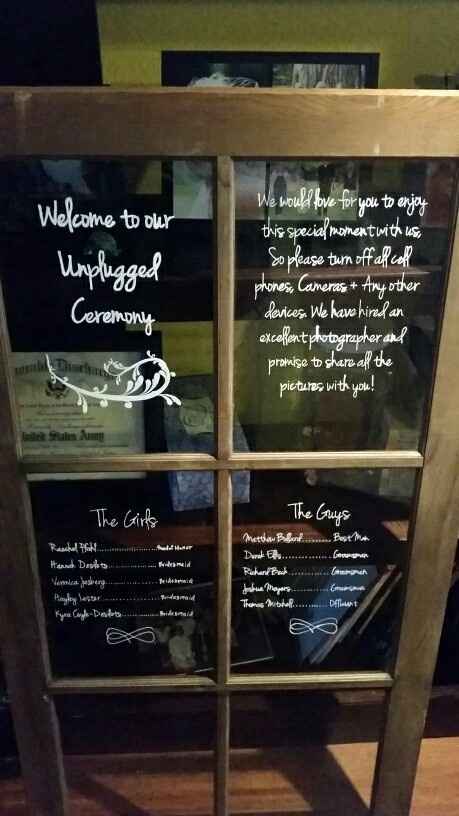 Welcome to our
Unplugged
Ceremony
We would love for you to enjoy
this special moment with us,
So please turn off all cell
phones, Cameras + Any other
devices. We have hired an
excellent photographer and
promise to share all the
pictures with you!
Discharge
United States Army
The Girls
Honor
Hannah Desilets.................Bridesmaid
Veronica.................Bridesmaid
Hayley Lester.................Bridesmaid
Kyra Coyle-Desilets.................Bridesmaid
The Guys
Matthew Bullard.........Best Man
Derek Ellis...............Groomsman
Richard Beck...............Groomsman
Joshua Mayers............Groomsman
Thomas Mitchell.........Officiant